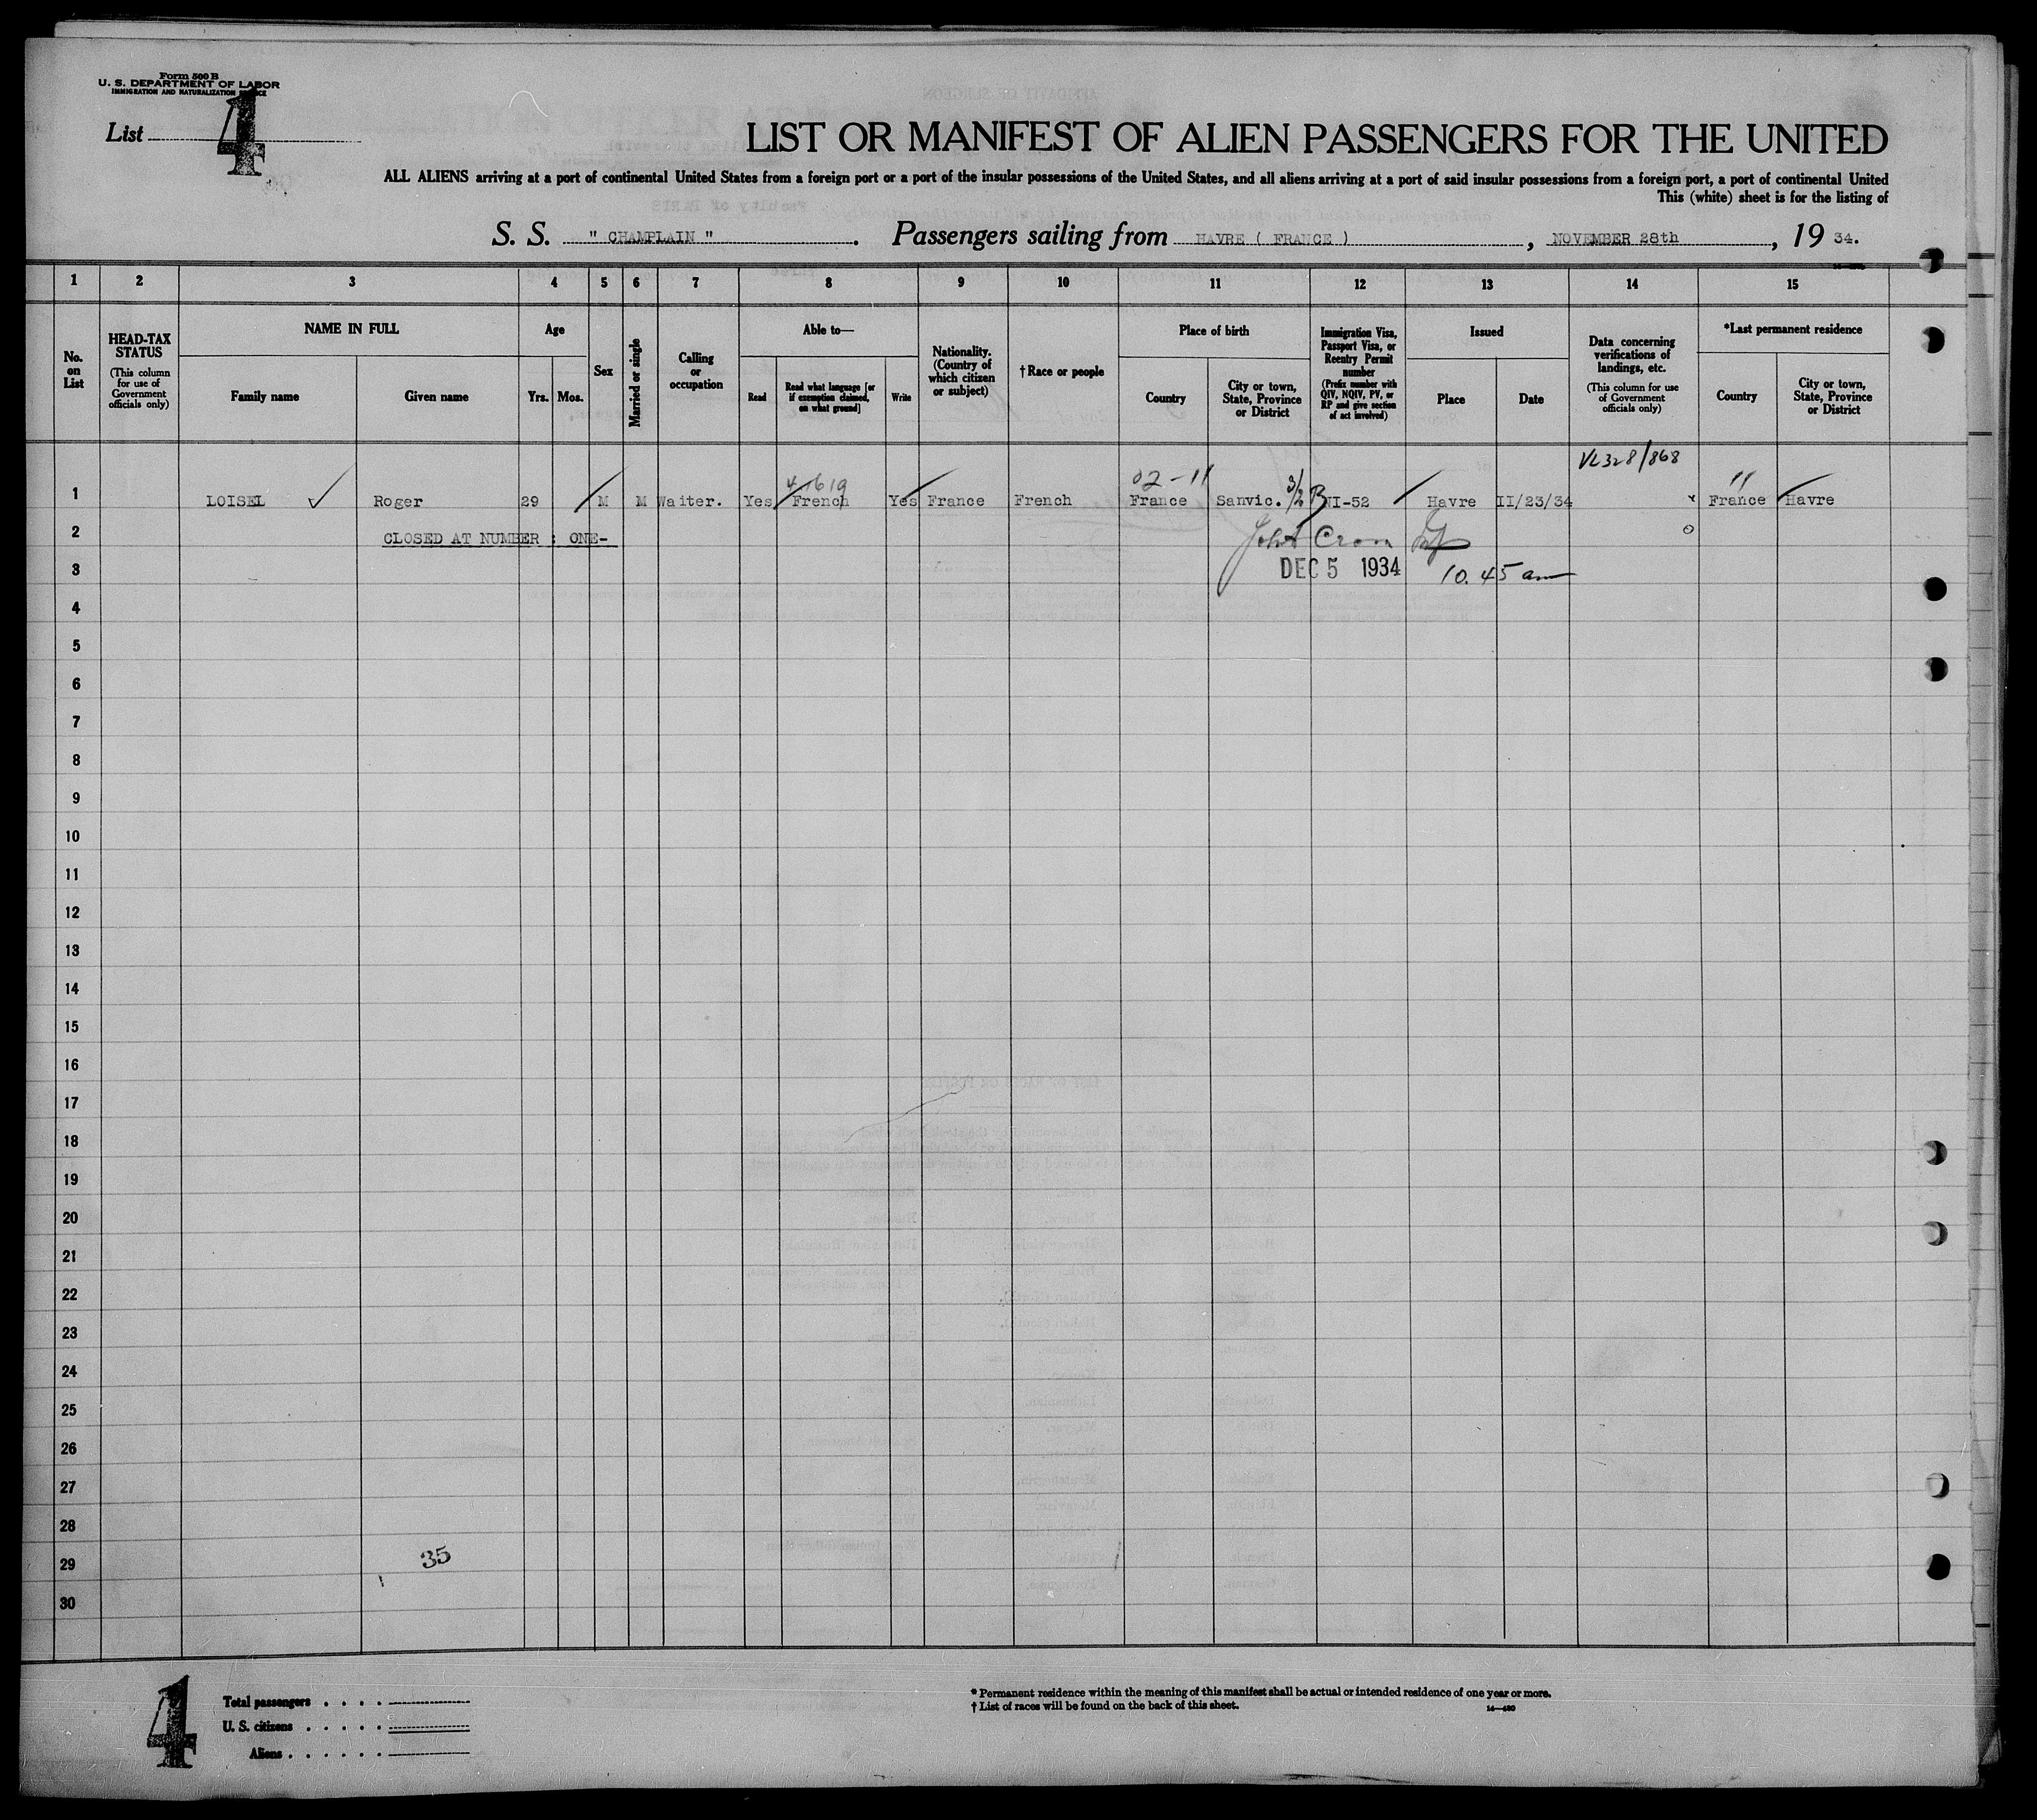 Form 500 B
U. S. DEPARTMENT OF LABOR
IMMIGRATION AND NATURALIZATION SERVICE
List 4
LIST OR MANIFEST OF ALIEN PASSENGERS FOR THE UNITED
ALL ALIENS arriving at a port of continental United States from a foreign port or a port of the insular possessions of the United States, and all aliens arriving at a port of said insular possessions from a foreign port, a port of continental United
This (white) sheet is for the listing of
S. S. " CHAMPLAIN ". Passengers sailing from HAVRE ( FRANCE ), NOVEMBER 28th, 19 34.
1 2 3 4 5 6 7 8 9 10 11 12 13 14 15
No. on List
HEAD-TAX STATUS (This column for use of Government officials only)
NAME IN FULL
Family name
Given name
Age
Yrs.
Mos.
Sex
Married or single
Calling or occupation
Able to—
Read
Read what language [or if exemption claimed, on what ground]
Write
Nationality. (Country of which citizen or subject)
†Race or people
Place of birth
Country
City or town, State, Province or District
Immigration Visa, Passport Visa, or Reentry Permit number (Prefix number with QIV, NQIV, PV, or RP and give section of act involved)
Issued
Place
Date
Data concerning verifications of landings, etc. (This column for use of Government officials only)
*Last permanent residence
Country
City or town, State, Province or District
02-11 VL328/868 11
1 LOISEL Roger 29 M M Waiter. Yes French Yes France French France Sanvic. 3/2 B NI-52 Havre II/23/34 France Havre
2 CLOSED AT NUMBER : ONE-
John Cron
3 DEC 5 1934 10.45 am
4
5
6
7
8
9
10
11
12
13
14
15
16
17
18
19
20
21
22
23
24
25
26
27
28
29 35
30
4
Total passengers . . . .
U. S. citizens . . . . .
Aliens . . . . . .
* Permanent residence within the meaning of this manifest shall be actual or intended residence of one year or more.
† List of races will be found on the back of this sheet.
14—430